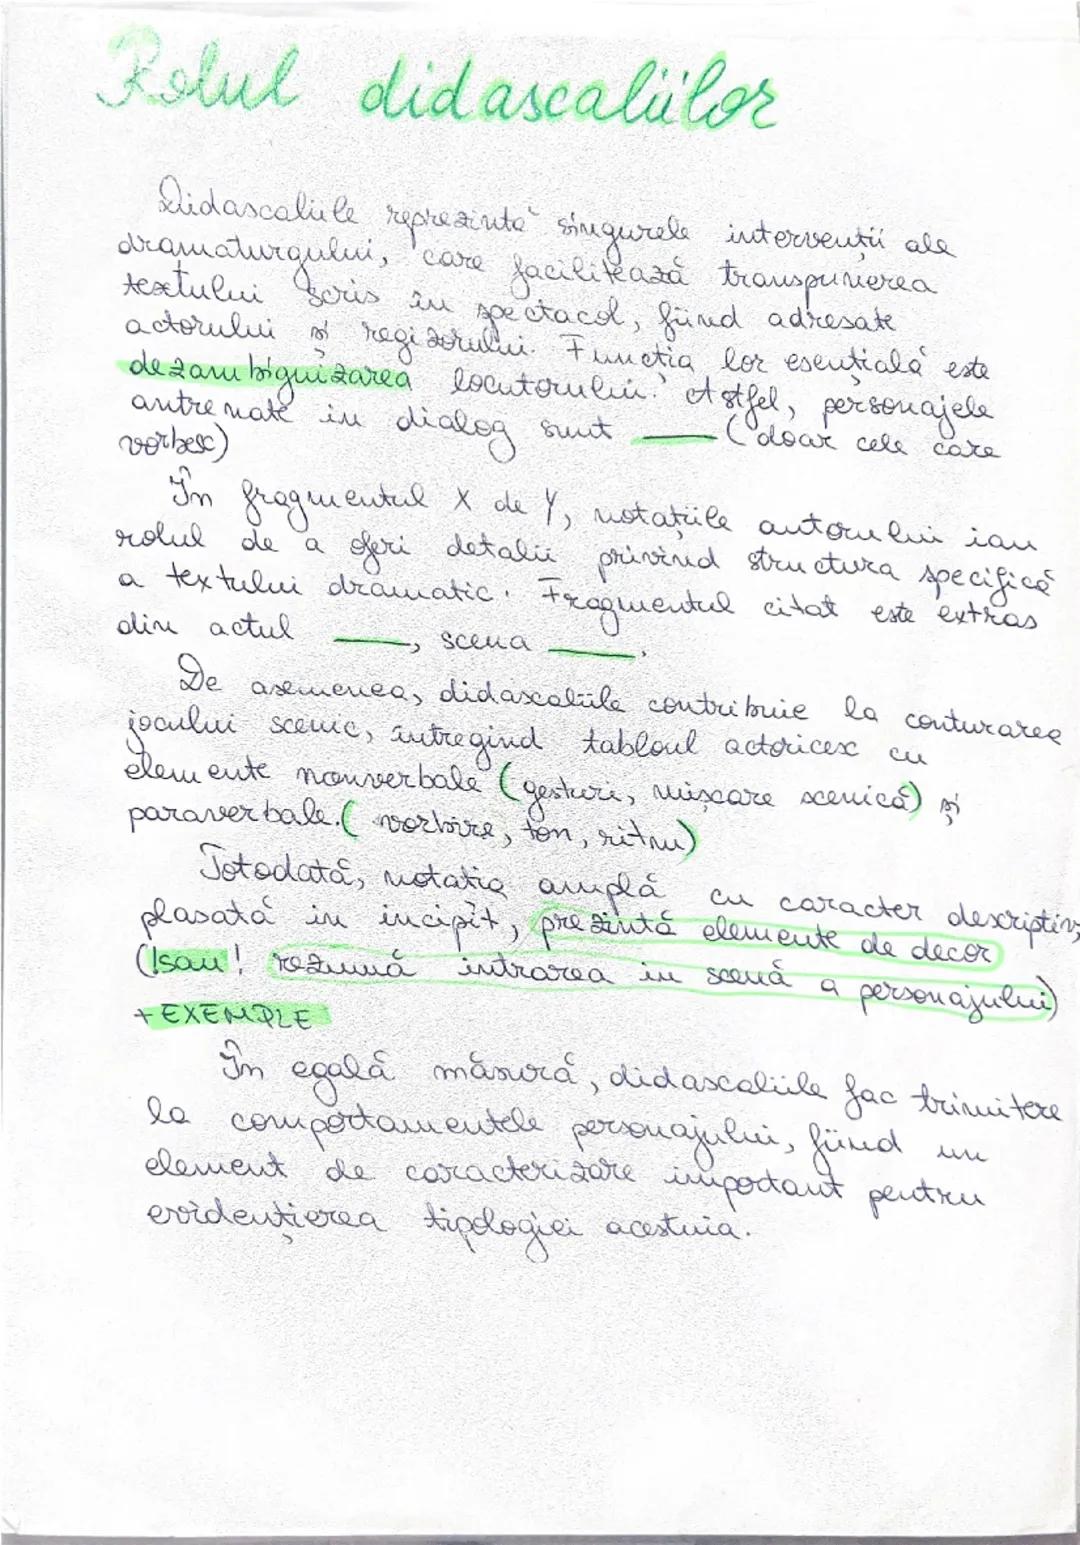 Rolul didascaliilor
Didascaliile reprezintă singurele intervenții ale
dramaturgului, care facilitează transpunerea
textului scris în spectacol, fiind adresate
actorului și regizorului. Funcția lor esențială este
dezambiguizarea locutorului. Astfel, personajele
antrenate în dialog sunt ____ (doar cele care
vorbesc)
În fragmentul X de Y, notațiile autorului iau
rolul de a oferi detalii privind structura specifică
a textului dramatic. Fragmentul citat este extras
din actul ____, scena ____.
De asemenea, didascaliile contribuie la conturarea
jocului scenic, întregind tabloul actoricesc cu
elemente nonverbale (gesturi, mișcare scenică) și
paraverbale. (vorbire, ton, ritm)
Totodată, notația amplă cu caracter descriptiv,
plasată în incipit, prezintă elemente de decor
(!sau! rezumă intrarea în scenă a personajului)
+ EXEMPLE
În egală măsură, didascaliile fac trimitere
la comportamentele personajului, fiind un
element de caracterizare important pentru
evidențierea tipologiei acestuia.